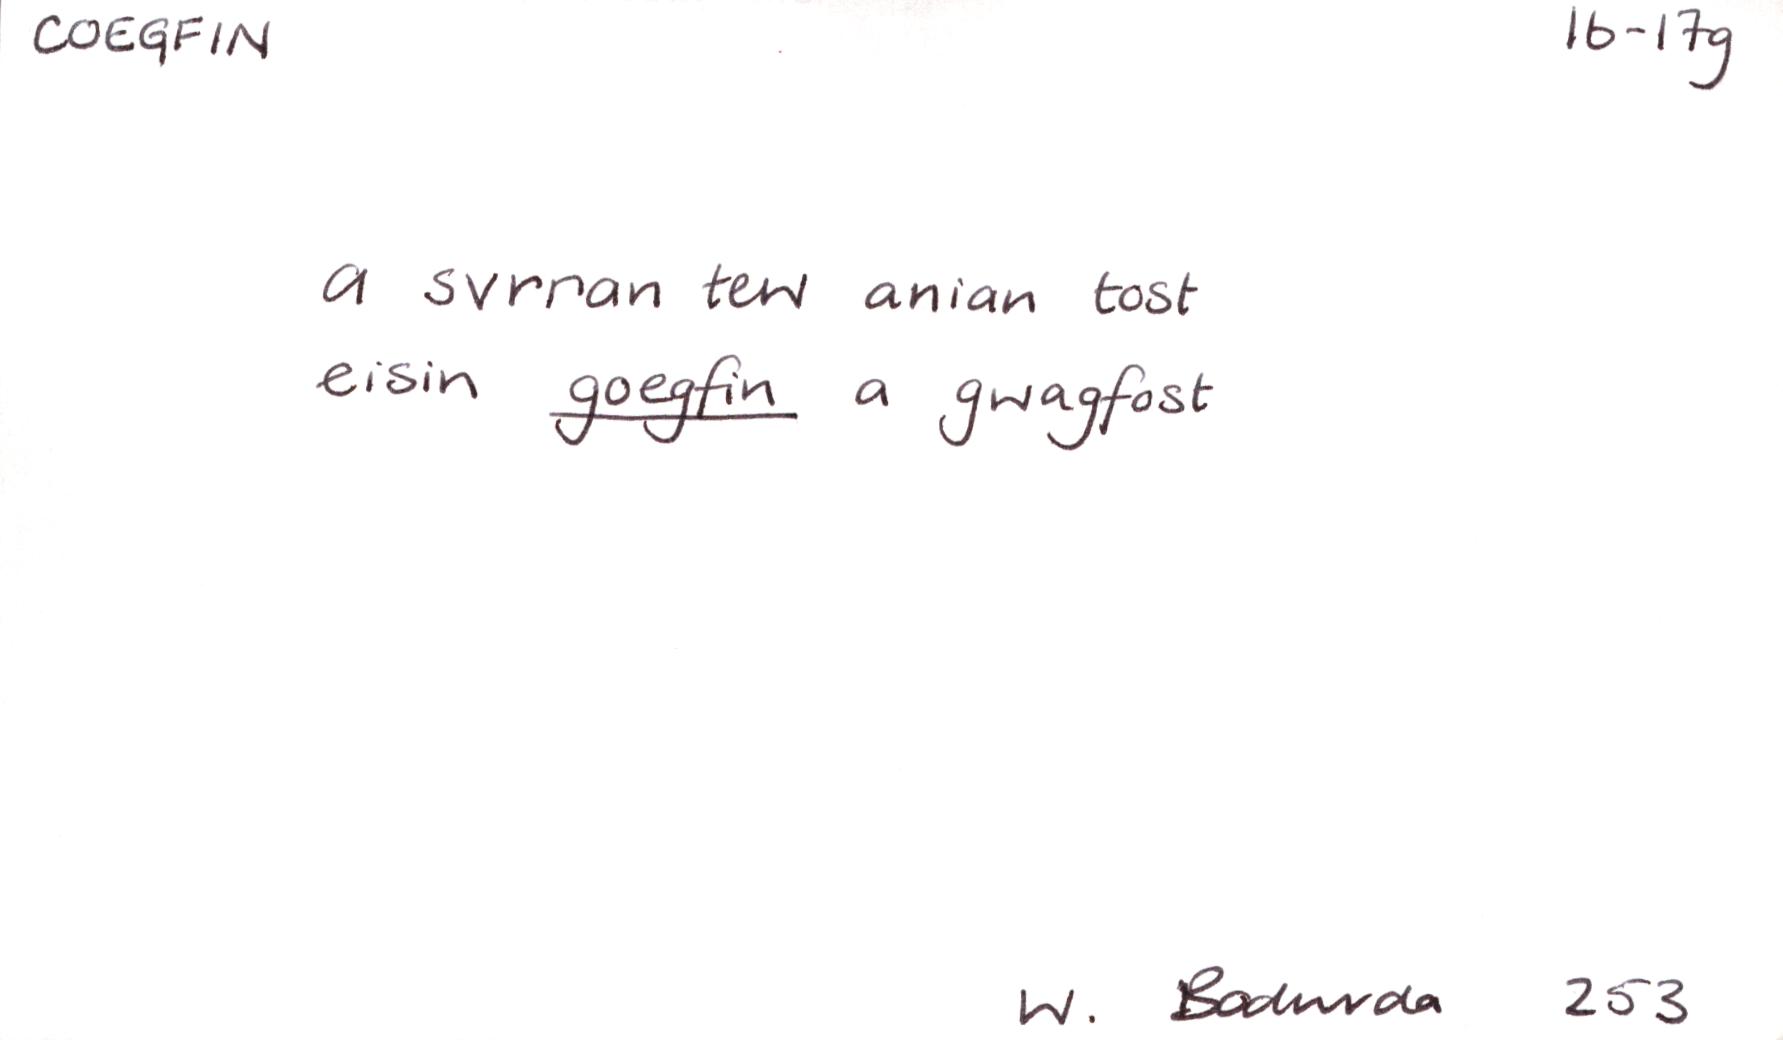 COEGFIN 16-17g
a svrran tew anian tost
eisin goegfin a gwagfost
W. Bodwrda 253